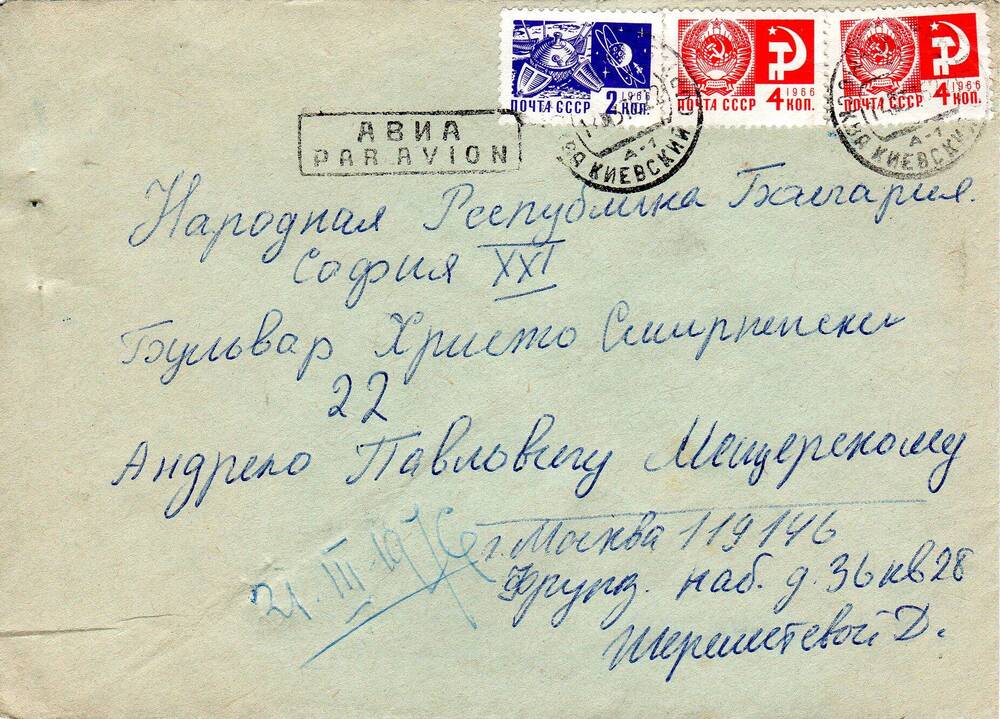 1966
ПОЧТА СССР 2 КОП.
1966
ПОЧТА СССР 4 КОП.
1966
ПОЧТА СССР 4 КОП.
АВИА
PAR AVION
А-1
КИЕВСКИЙ
А-1
КИЕВСКИЙ
Народная Республика Балгария.
София XXI
Бульвар Христо Смирненски
22
Андрею Павловичу Мещерскому
г. Москва 119146
Фрунз. наб. д. 36 кв 28
Шереметевой Д.
21. III-1976